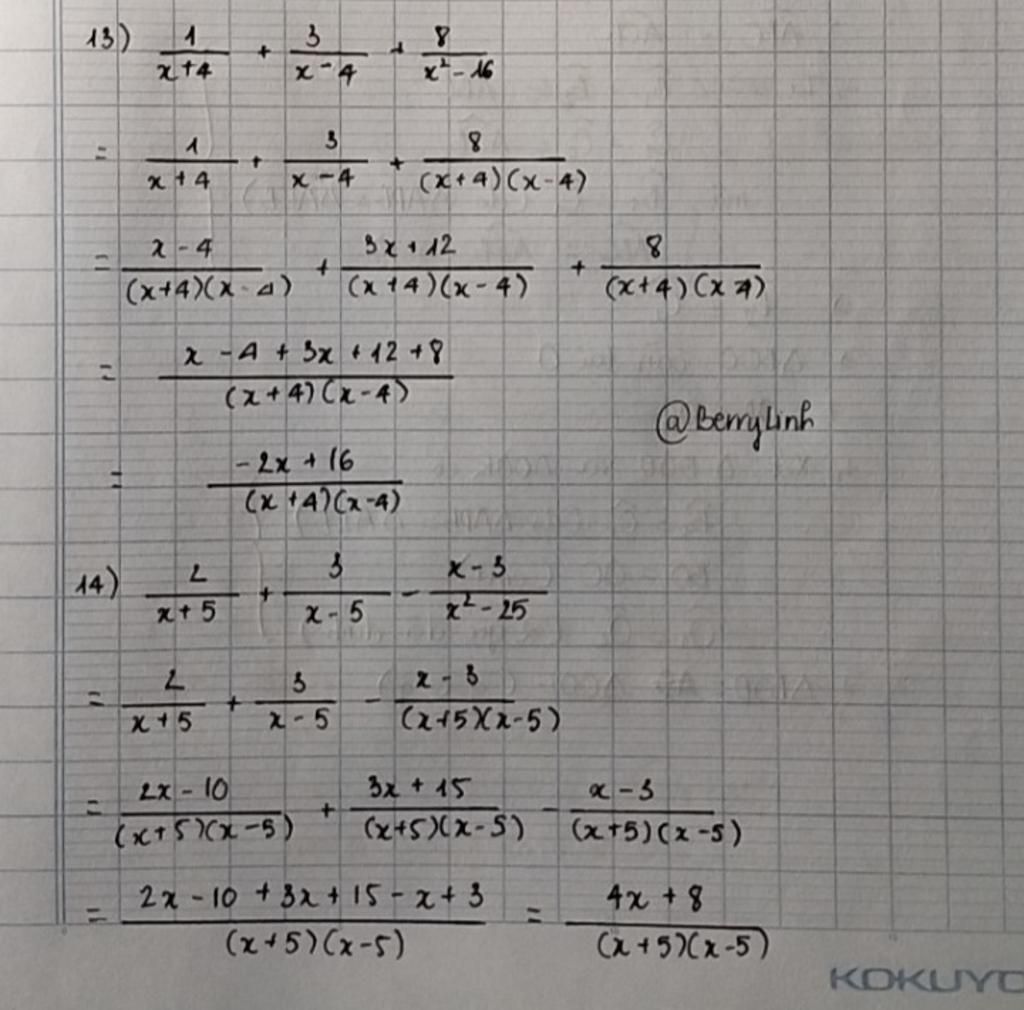 13) 1/(x+4) + 3/(x-4) + 8/(x²-16)
= 1/(x+4) + 3/(x-4) + 8/((x+4)(x-4))
= (x-4)/((x+4)(x-4)) + (3x+12)/((x+4)(x-4)) + 8/((x+4)(x-4))
= (x-4+3x+12+8)/((x+4)(x-4))
@BerryLinh
= (-2x+16)/((x+4)(x-4))
14) 2/(x+5) + 3/(x-5) - (x-3)/(x²-25)
= 2/(x+5) + 3/(x-5) - (x-3)/((x+5)(x-5))
= (2x-10)/((x+5)(x-5)) + (3x+15)/((x+5)(x-5)) - (x-3)/((x+5)(x-5))
= (2x-10+3x+15-x+3)/((x+5)(x-5)) = (4x+8)/((x+5)(x-5))
KOKUYO